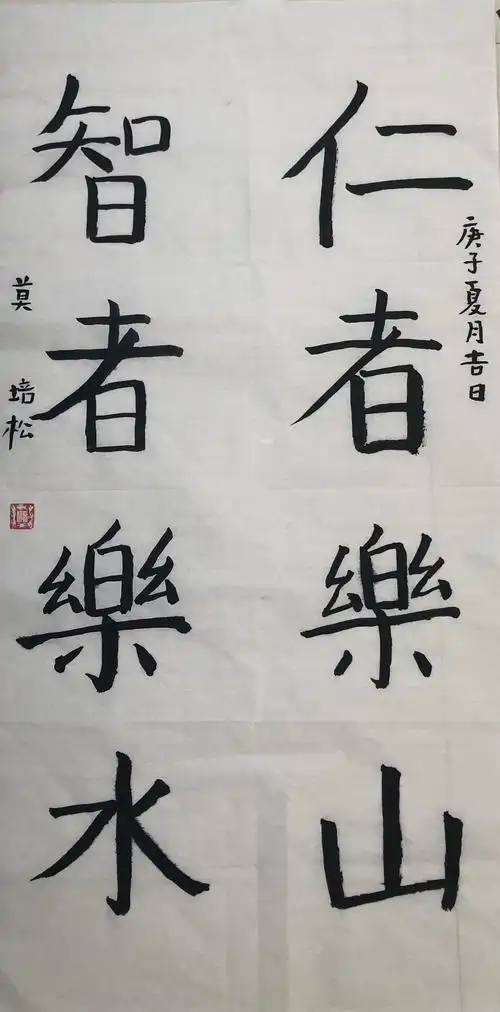 庚子夏月吉日
仁者樂山
智者樂水
莫培松